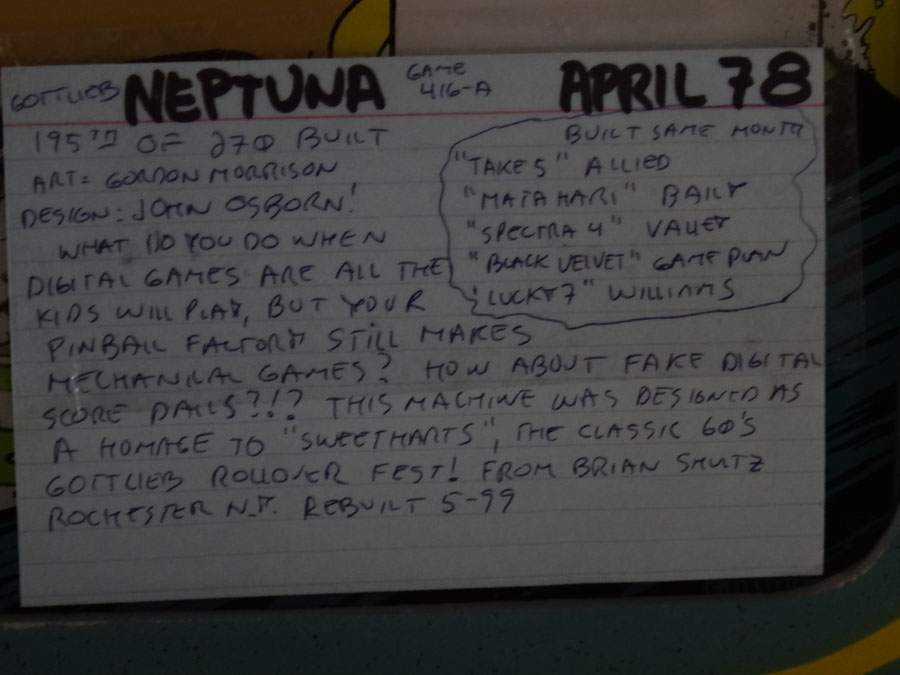 GOTTLIEB NEPTUNA GAME 416-A APRIL 78
195TH OF 270 BUILT
ART= GORDON MORRISON
DESIGN: JOHN OSBORN!
WHAT DO YOU DO WHEN
DIGITAL GAMES ARE ALL THE
KIDS WILL PLAY, BUT YOUR
PINBALL FACTORY STILL MAKES
MECHANICAL GAMES? HOW ABOUT FAKE DIGITAL
SCORE DAILS?!? THIS MACHINE WAS DESIGNED AS
A HOMAGE TO "SWEETHARTS", THE CLASSIC 60'S
GOTTLIEB ROLLOVER FEST! FROM BRIAN SHUTZ
ROCHESTER N.Y. REBUILT 5-99
BUILT SAME MONTH
"TAKE 5" ALLIED
"MATA HARI" BALLY
"SPECTRA 4" VALLEY
"BLACK VELVET" GAME PLAN
"LUCKY 7" WILLIAMS